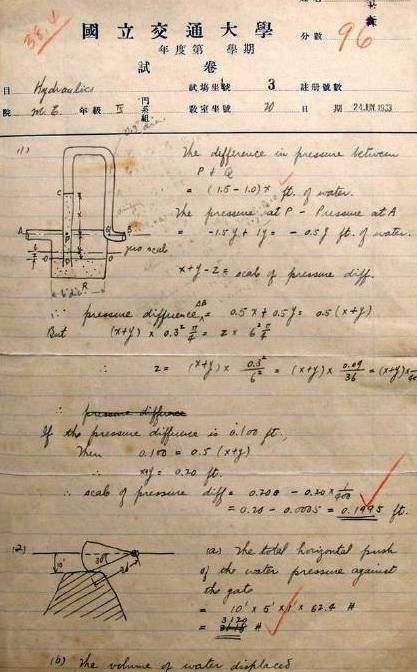 國立交通大學
年度第 學期
分數 96
試卷
目 Hydraulics 試場坐號 3 註冊號數
院 M.E. 年級 IV 門系組 教室坐號 70 日期 24 JUN 1933
(1)
The difference in pressure between
P & Q
= (1.5 - 1.0) x ft. of water.
The pressure at P - Pressure at A
= -1.5y + 1y = -0.5y ft. of water.
zero scale
x+y-z = scale of pressure diff.
∴ pressure difference AB = 0.5x + 0.5y = 0.5(x+y)
But (x+y) × 0.3² π/4 = z × 6² π/4
∴ z = (x+y) 0.3²/6² = (x+y) × 0.09/36 = (x+y) ×
∴ pressure difference
If the pressure difference is 0.100 ft.,
Then 0.100 = 0.5 (x+y)
∴ x+y = 0.20 ft.
∴ scale of pressure diff = 0.200 - 0.20 × 1/400
= 0.20 - 0.0005 = 0.1995 ft.
(2)
10'
30°
(a) The total horizontal push
of the water pressure against
the gate
= 10' × 5' × 1' × 62.4 #
= 3120 #
(b) The volume of water displaced